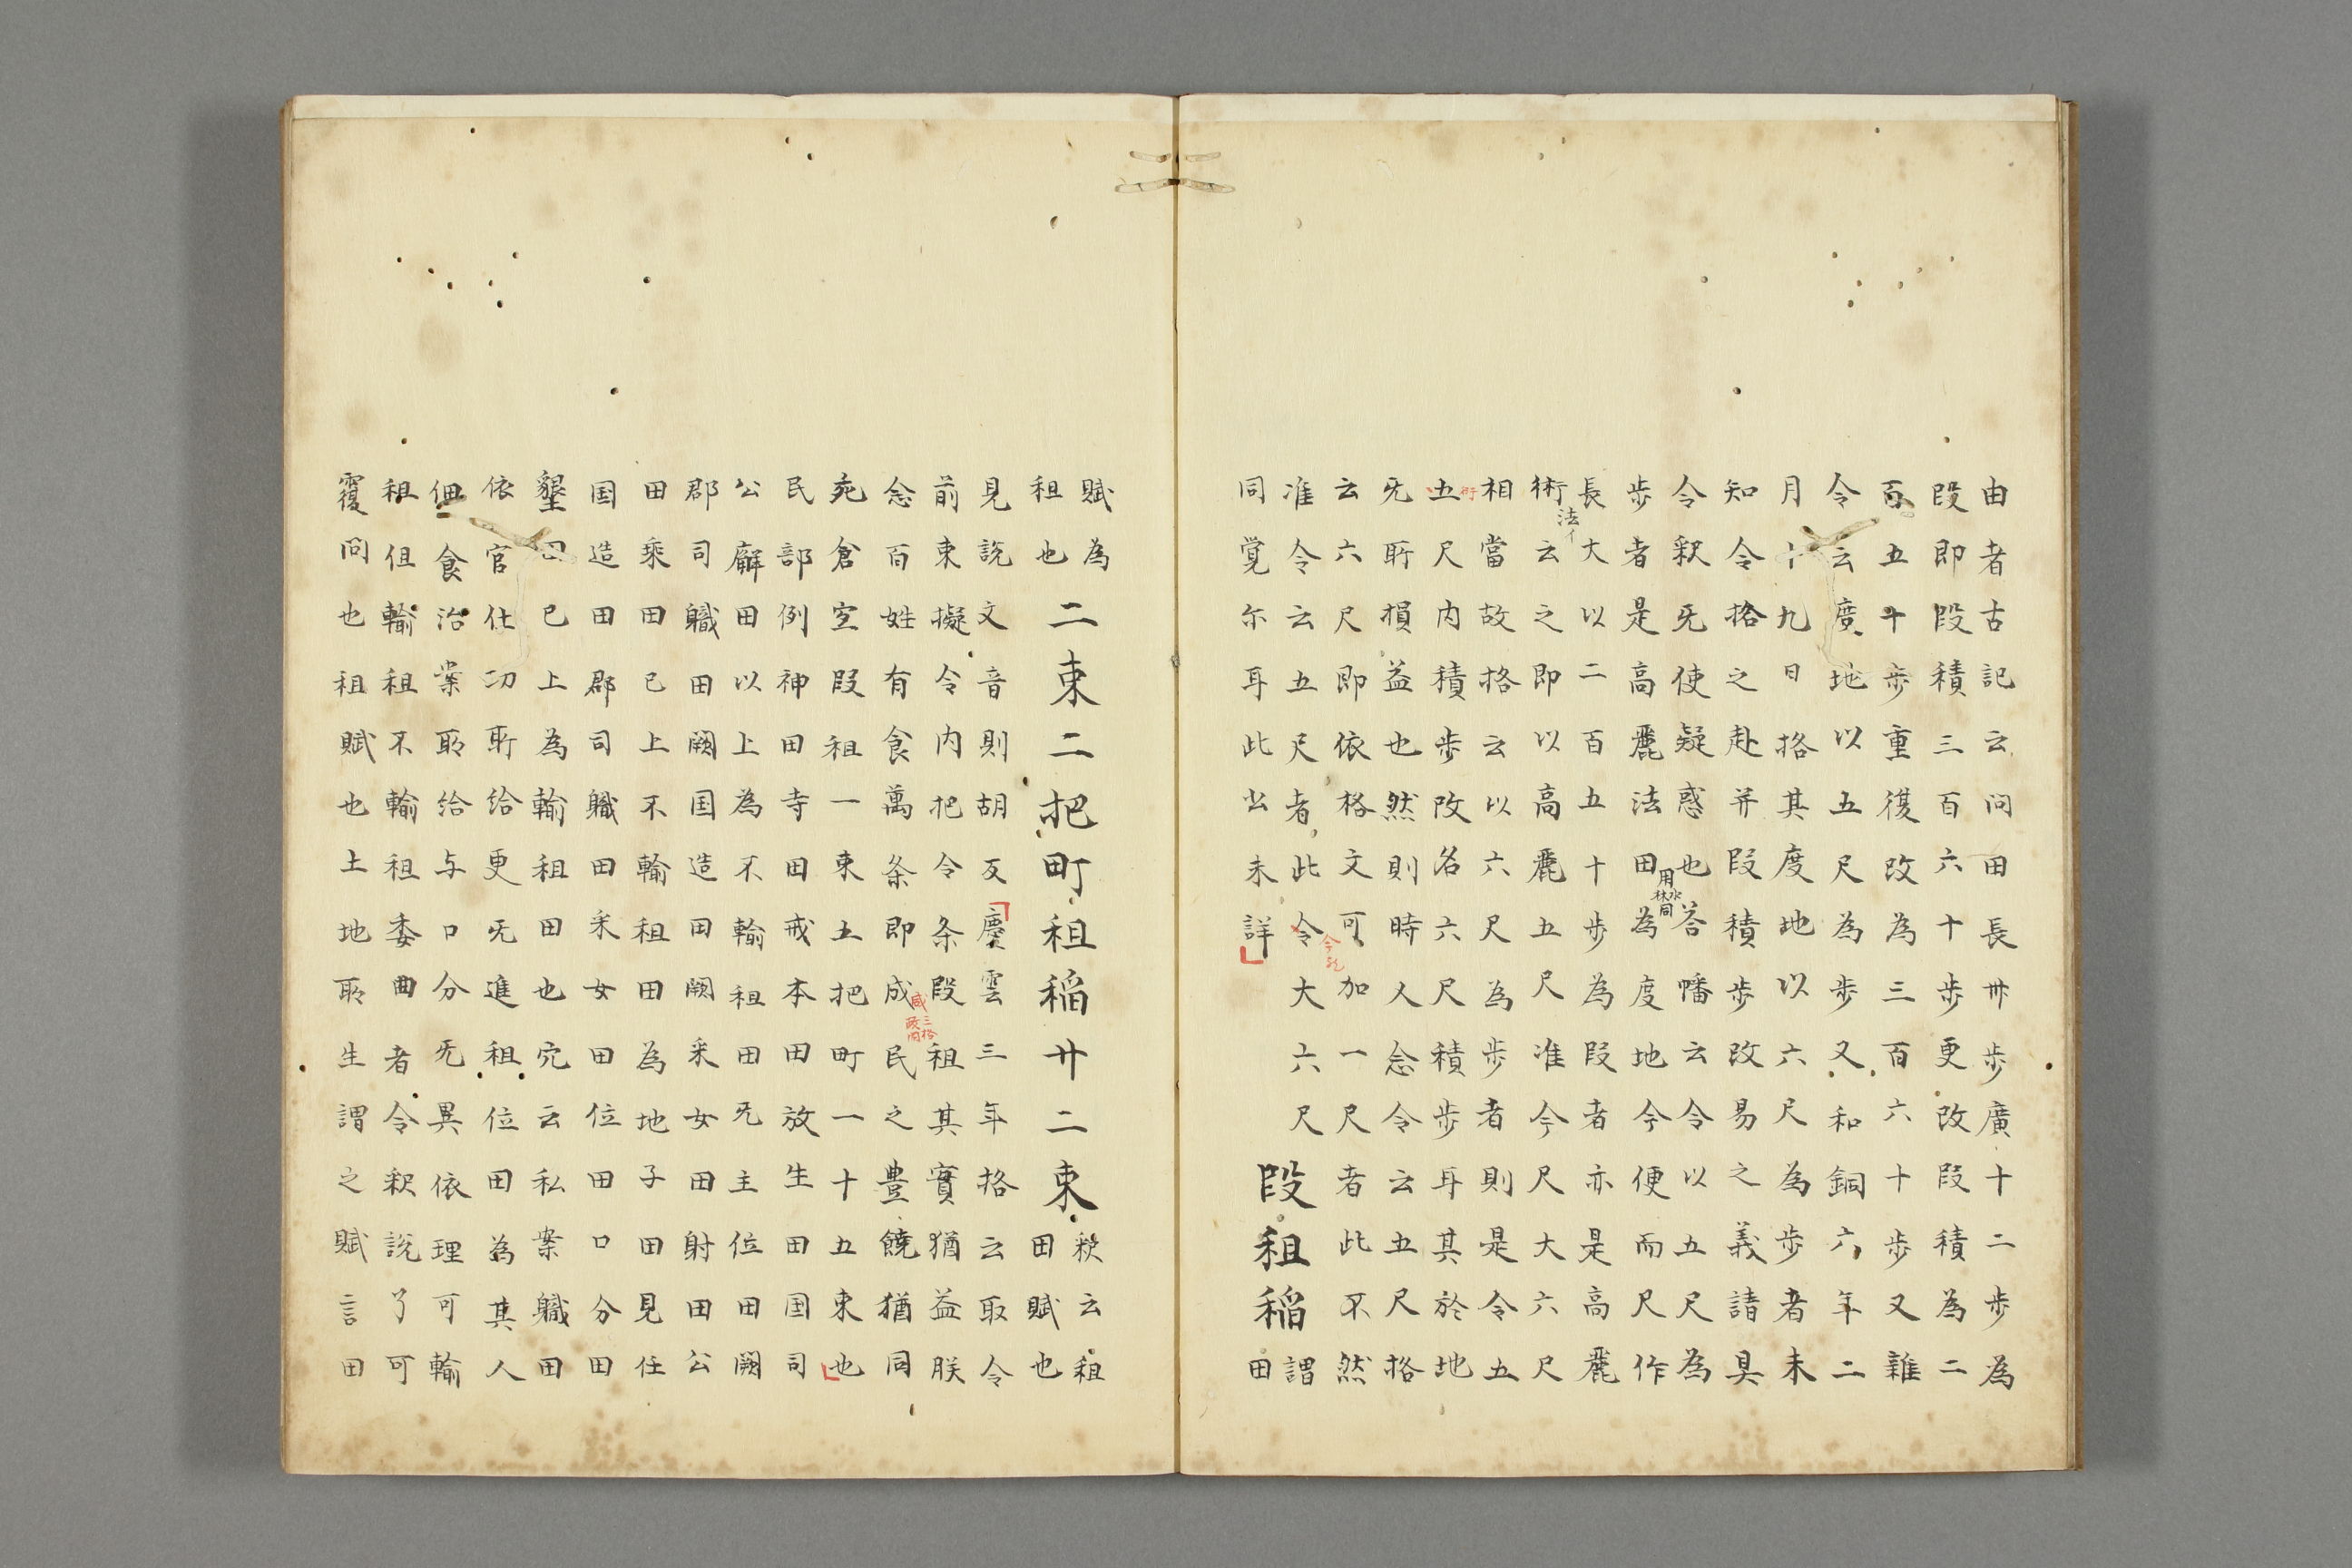 由者古記云問田長卅步廣十二步為
段即段積三百六十步更改段積為二
百五十步重復改為三百六十步又雜
令云度地以五尺為步又和銅六年二
月十九日格其度地以六尺為步者未
知令格之赴并段積步改易之義請具
令釈旡使疑惑也答幡云令以五尺為
步者是高麗法田為度地今便而尺作
用
水林同
長大以二百五十步為段者亦是高麗
術云之即以高麗五尺准今尺大六尺
法イ
相當故格云以六尺為步者則是令五
五尺内積步改名六尺積步耳其於地
旡所損益也然則時人念令云五尺格
云六尺即依格文可加一尺者此不然
准令云五尺者此令大六尺
同覚尓耳此公未詳
段租稲
謂
田
賦為
租也
二束二把町租稲廿二束
釈云租
田賦也
見說文音則胡反慶雲三年格云取令
前束擬令内把令条段租其實猶益朕
念百姓有食萬条即成民之豊饒猶同
宛倉空段租一束五把町一十五束也
民部例神田寺田戒本田放生田国司
公廨田以上為不輸租田旡主位田闕
郡司職田闕国造田闕采女田射田公
田乗田已上不輸租田為地子田見任
国造田郡司職田采女田位田口分田
墾田已上為輸租田也宛云私案職田
依官仕功所給更旡進租位田為其人
但食治業所給与口分旡異依理可輸
租但輸租不輸租委曲者令釈説了可
覆問也租賦也土地所生謂之賦言田